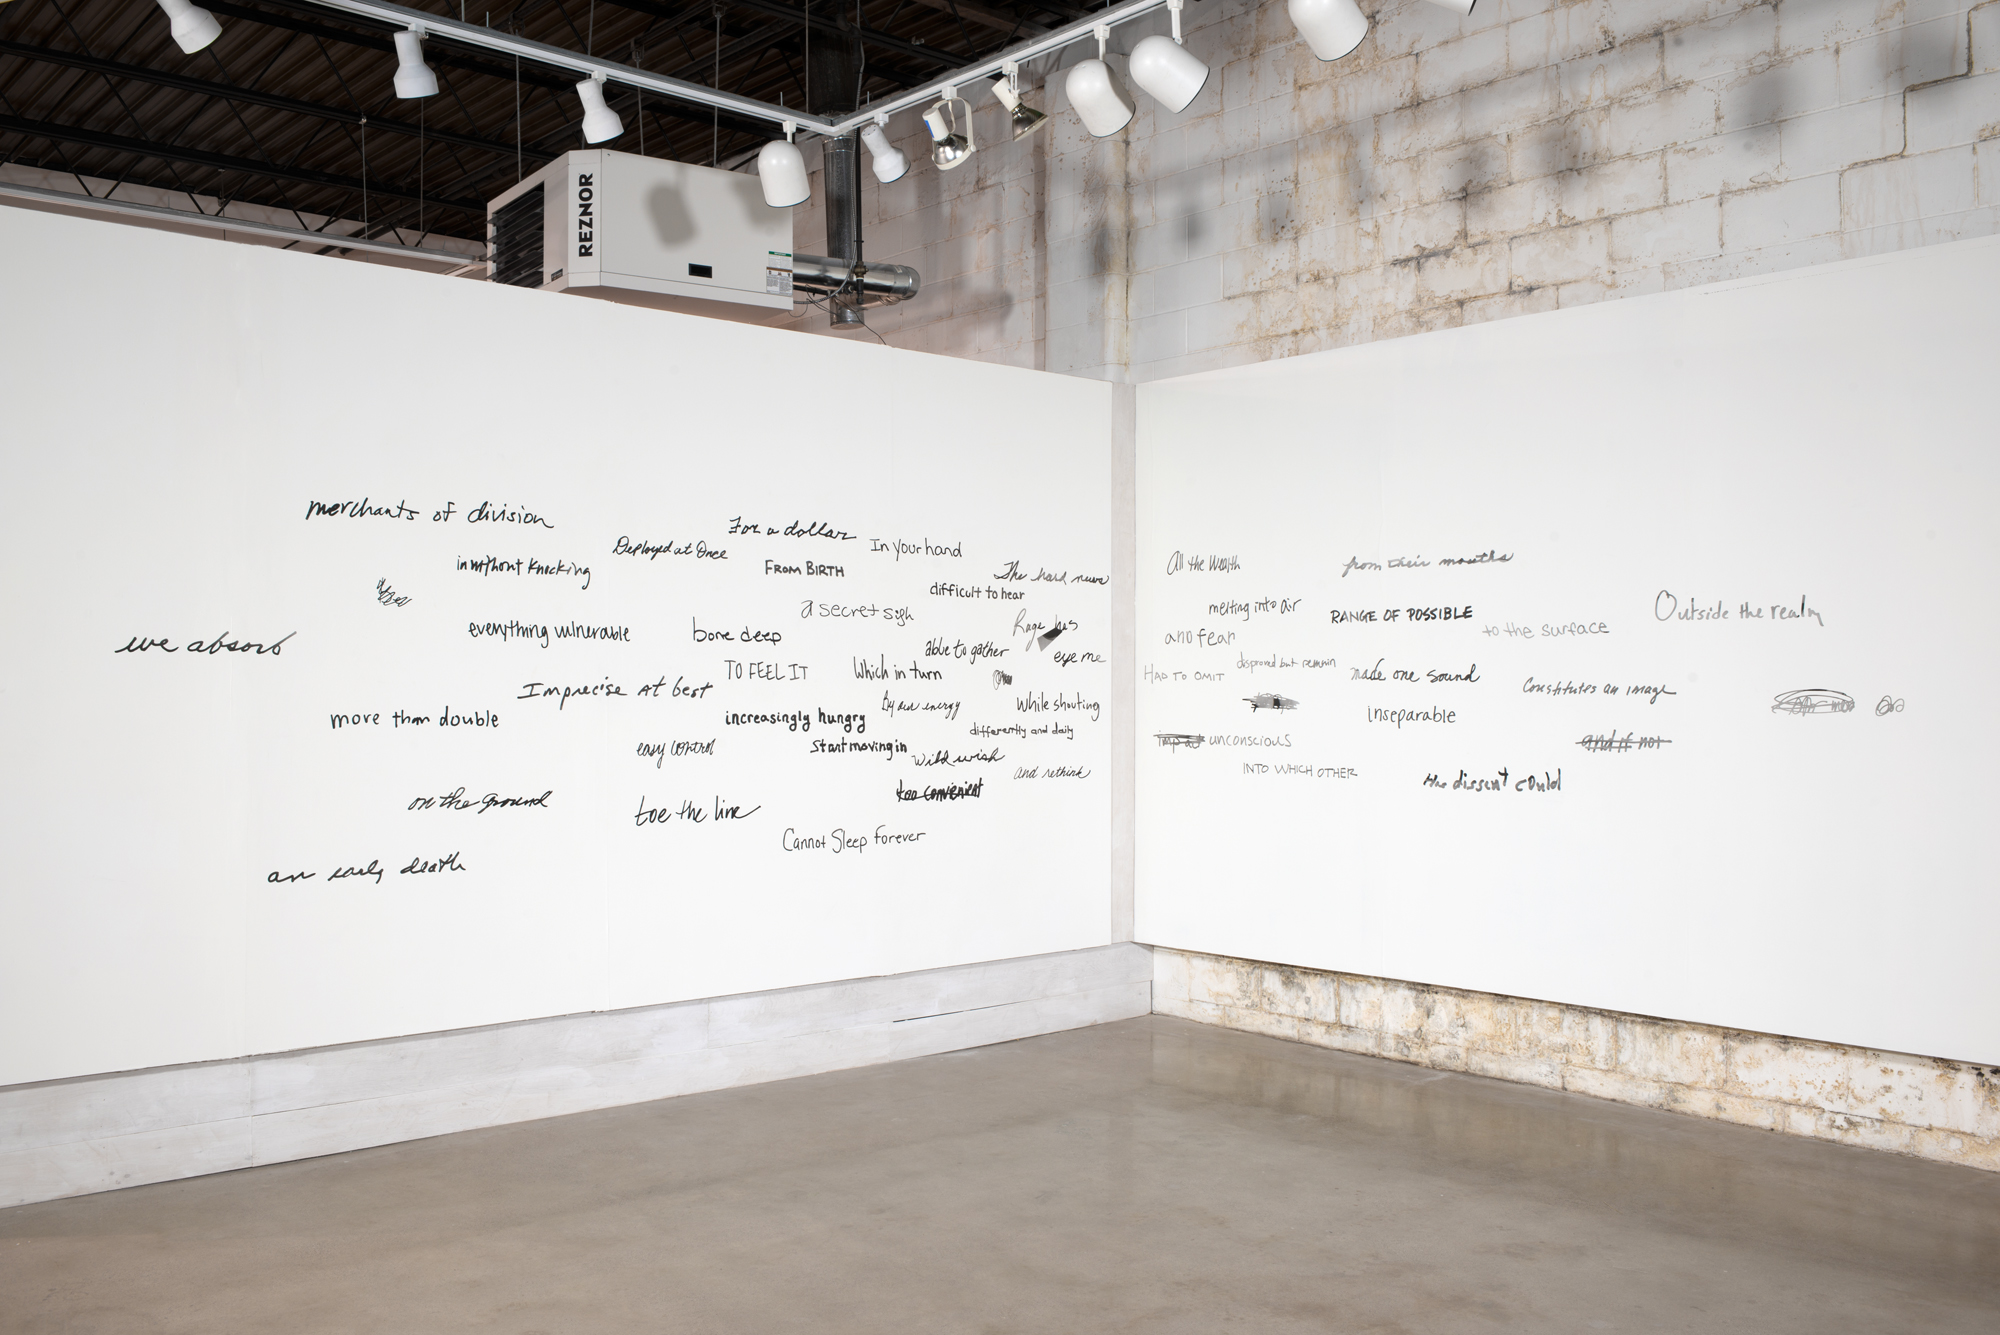 REZNOR
merchants of division
For a dollar
In your hand
Deployed at Once
in without knocking
FROM BIRTH
The hard
difficult to hear
a secret sigh
Rage has
everything vulnerable
bone deep
we absorb
able to gather
eye me
TO FEEL IT
Which in turn
Imprecise At best
more than double
increasingly hungry
By our energy
While shouting
differently and daily
easy control
Start moving in
Wild wish
and rethink
too convenient
on the ground
toe the line
Cannot Sleep Forever
an early death
All the Wealth
from their mouths
melting into air
RANGE OF POSSIBLE
Outside the realm
and fear
to the surface
HAD TO OMIT
disproved but remain
made one sound
Constitutes an image
inseparable
unconscious
and if not
INTO WHICH OTHER
the dissent could